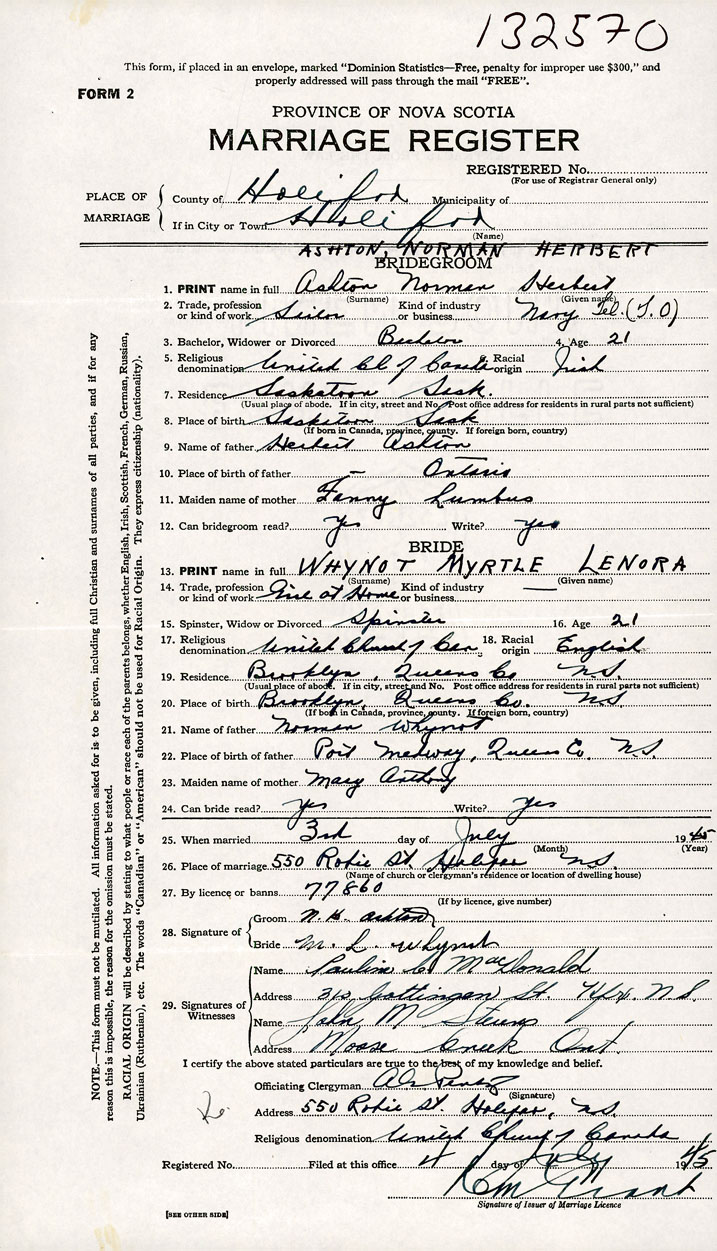 132570
This form, if placed in an envelope, marked “Dominion Statistics—Free, penalty for improper use $300,” and
properly addressed will pass through the mail “FREE”.
FORM 2
PROVINCE OF NOVA SCOTIA
MARRIAGE REGISTER
REGISTERED No.
(For use of Registrar General only)
PLACE OF MARRIAGE
County of Halifax Municipality of
If in City or Town Halifax
(Name)
ASHTON, NORMAN HERBERT
BRIDEGROOM
1. PRINT name in full Ashton Norman Herbert
(Surname) (Given name)
2. Trade, profession or kind of work Sailor Kind of industry or business Navy Tel. (T.O)
3. Bachelor, Widower or Divorced Bachelor 4. Age 21
5. Religious denomination United Ch of Canada Racial origin Irish
7. Residence Saskatoon Sask.
(Usual place of abode. If in city, street and No. Post office address for residents in rural parts not sufficient)
8. Place of birth Saskatoon Sask
(If born in Canada, province, county. If foreign born, country)
9. Name of father Herbert Ashton
10. Place of birth of father — Ontario
11. Maiden name of mother Fanny Lumbus
12. Can bridegroom read? Yes Write? yes
BRIDE
13. PRINT name in full WHYNOT MYRTLE LENORA
(Surname) (Given name)
14. Trade, profession or kind of work at Home Kind of industry or business —
15. Spinster, Widow or Divorced Spinster 16. Age 21
17. Religious denomination United Church of Can. 18. Racial origin English
19. Residence Brooklyn, Queens Co N.S.
(Usual place of abode. If in city, street and No. Post office address for residents in rural parts not sufficient)
20. Place of birth Brooklyn, Queens Co. N.S
(If born in Canada, province, county. If foreign born, country)
21. Name of father Norman Whynot
22. Place of birth of father Port Medway, Queens Co. N.S.
23. Maiden name of mother Mary Anthony
24. Can bride read? yes Write? yes
25. When married 3rd day of July 1945
(Month) (Year)
26. Place of marriage 550 Robie St. Halifax N.S.
(Name of church or clergyman's residence or location of dwelling house)
27. By licence or banns 77860
(If by licence, give number)
28. Signature of
Groom N. H. Ashton
Bride M. L. Whynot
29. Signatures of Witnesses
Name Pauline C. MacDonald
Address Gottingen St. Hfx. N.S.
Name John M Stevens
Address Moose Creek Ont.
I certify the above stated particulars are true to the best of my knowledge and belief.
Officiating Clergyman
(Signature)
Address 550 Robie St. Halifax, N.S.
Religious denomination United Church of Canada
Registered No. Filed at this office 4 day of July 1945
Grant
Signature of Issuer of Marriage Licence
[SEE OTHER SIDE]
NOTE.—This form must not be mutilated. All information asked for is to be given, including full Christian and surnames of all parties, and if for any
reason this is impossible, the reason for the omission must be stated.
RACIAL ORIGIN will be described by stating to what people or race each of the parents belongs, whether English, Irish, Scottish, French, German, Russian,
Ukrainian (Ruthenian), etc. The words “Canadian” or “American” should not be used for Racial Origin. They express citizenship (nationality).